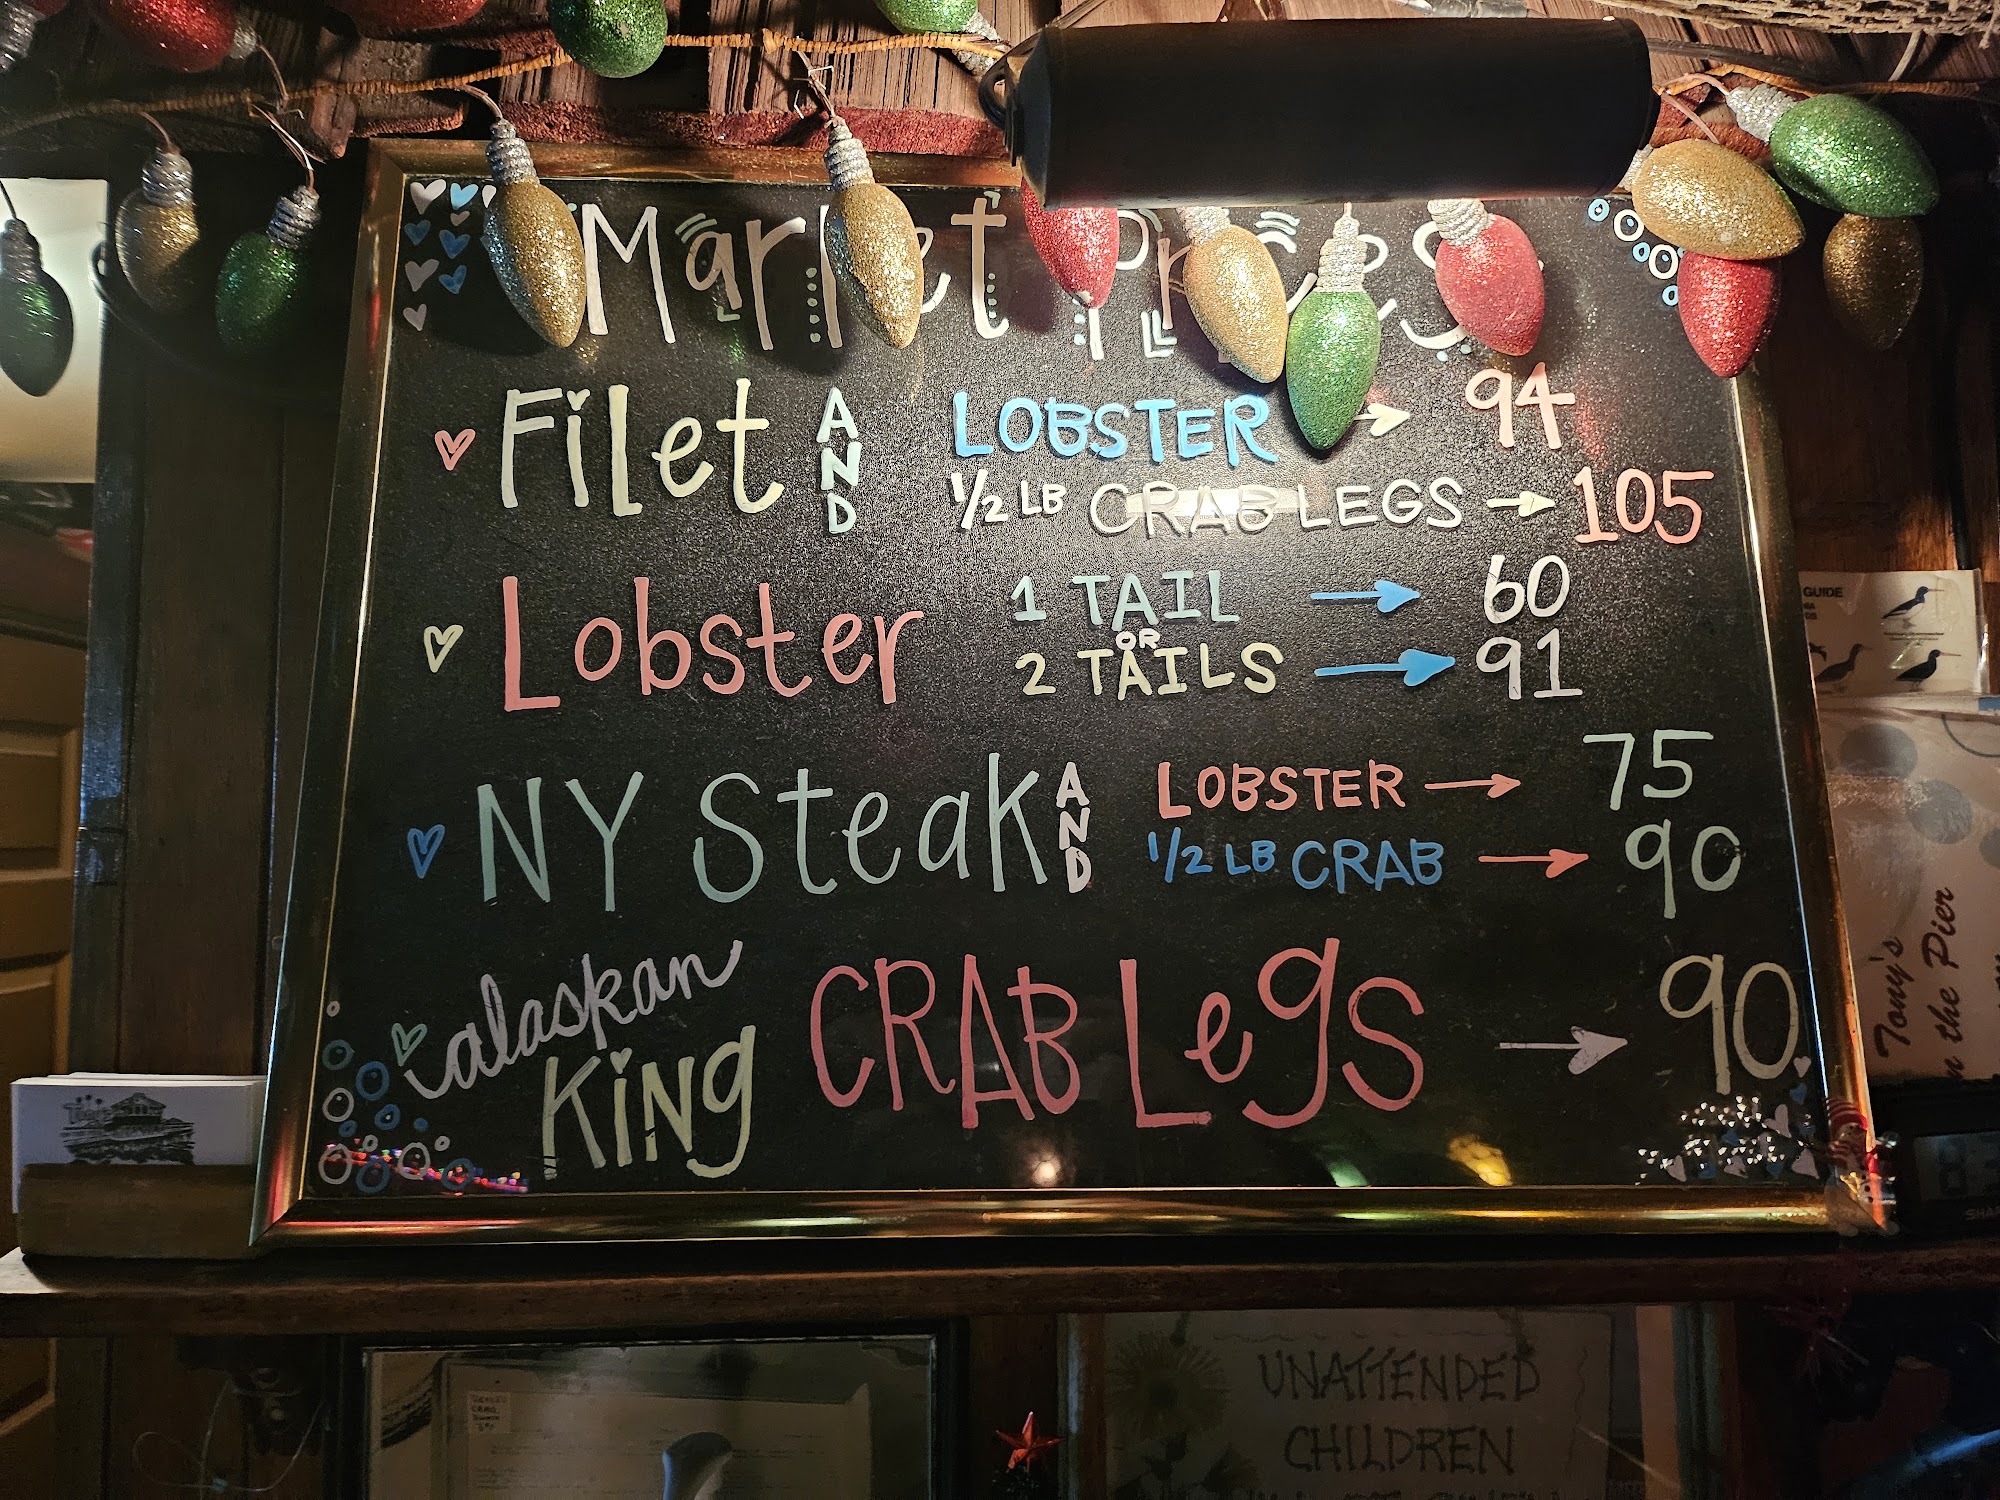 Market Prices
Filet AND LOBSTER → 94
1/2 LB CRAB LEGS → 105
Lobster 1 TAIL → 60
OR
2 TAILS → 91
NY Steak AND LOBSTER → 75
1/2 LB CRAB → 90
alaskan King CRAB Legs → 90
GUIDE
Tony's
the Pier
UNATTENDED
CHILDREN